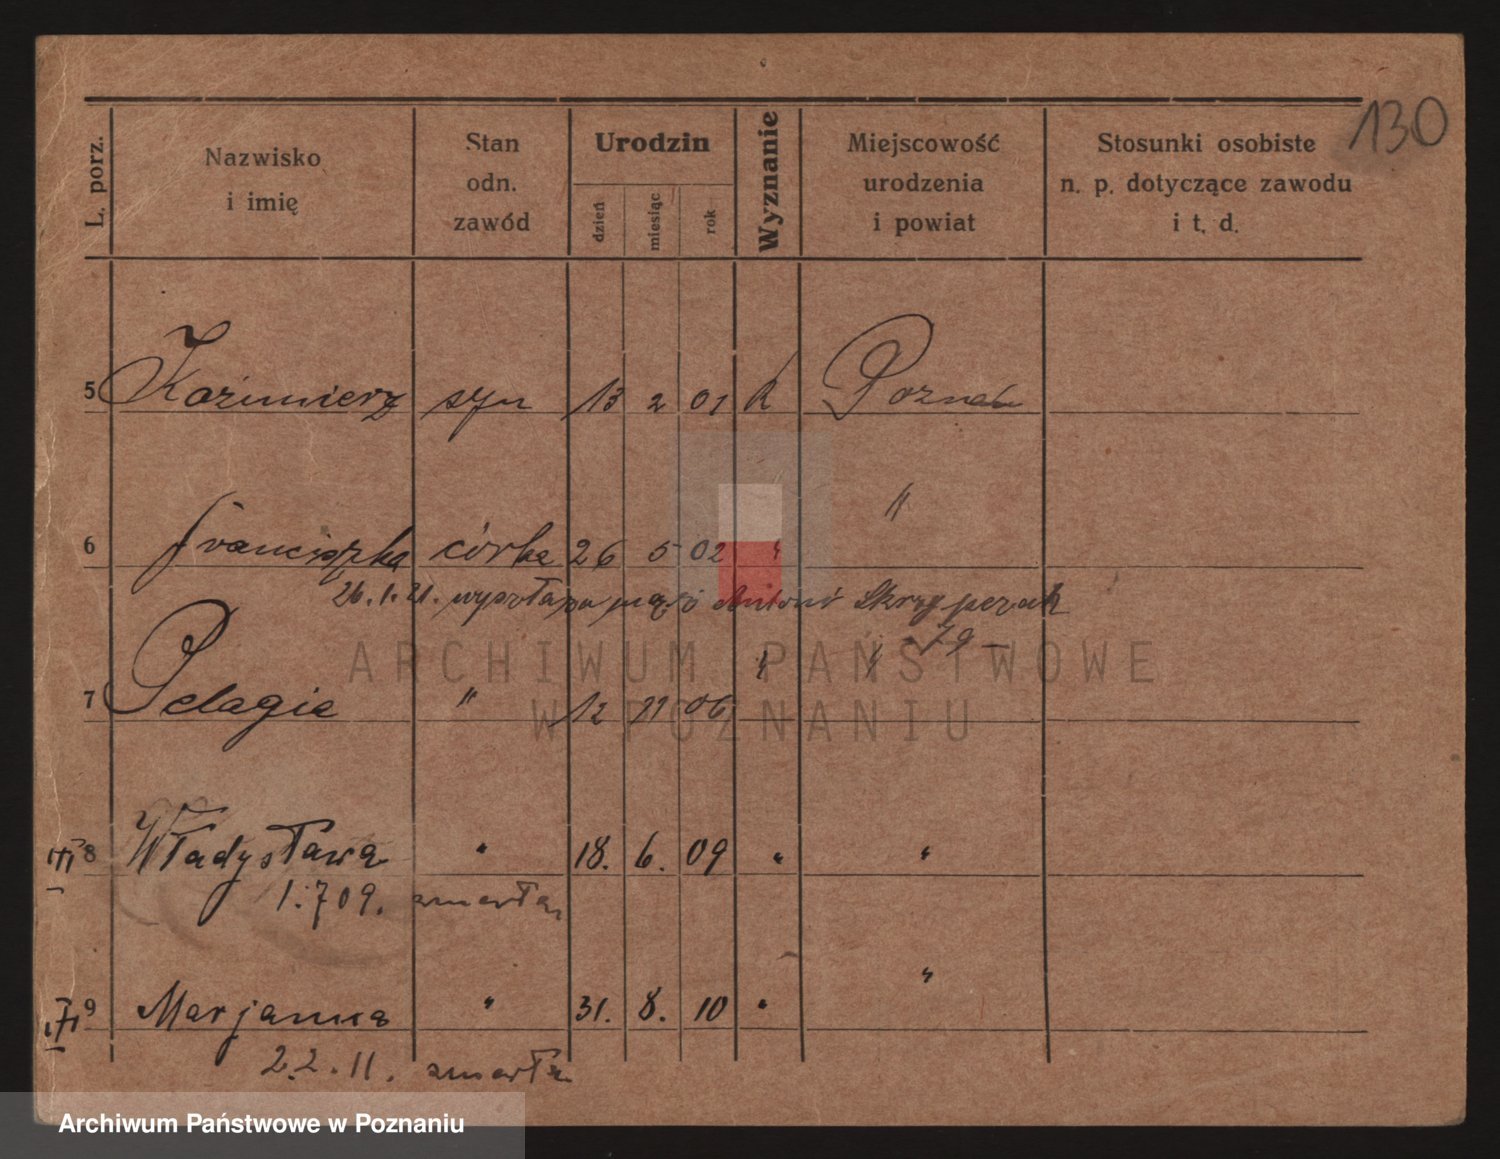 130
L. porz.
Nazwisko
i imię
Stan
odn.
zawód
Urodzin
dzień
miesiąc
rok
Wyznanie
Miejscowość
urodzenia
i powiat
Stosunki osobiste
n. p. dotyczące zawodu
i t. d.
5 Kazimierz syn 13 2 01 k Poznań
6 Franciszka córka 26 5 02 " "
26.1.21. wyszła za mąż Antoni Skrzypczak
79 -
7 Pelagia " 12 11 06 " "
8 Władysława " 18. 6. 09 " "
1.7 09. zmarła
9 Marjanna " 31. 8. 10 " "
2.2.11. zmarła
ARCHIWUM PAŃSTWOWE
W POZNANIU
Archiwum Państwowe w Poznaniu